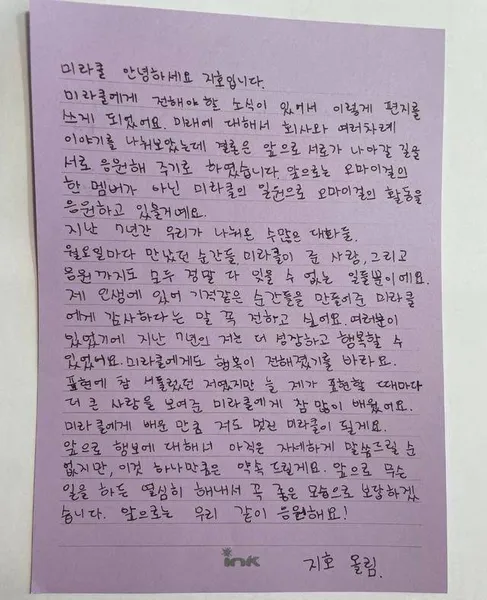 미라클 안녕하세요 지호입니다.
미라클에게 전해야할 소식이 있어서 이렇게 편지를
쓰게 되었어요. 미래에 대해서 회사와 여러차례
이야기를 나눠보았는데 결론은 앞으로 서로가 나아갈 길을
서로 응원해 주기로 하였습니다. 앞으로는 오마이걸의
한 멤버가 아닌 미라클의 일원으로 오마이걸의 활동을
응원하고 있을거예요.
지난 7년간 우리가 나눠온 수많은 대화들.
월요일마다 만났던 순간들, 미라클이 준 사랑, 그리고
응원까지도 모두 정말 다 잊을 수 없는 일들뿐이에요.
제 인생에 있어 기적같은 순간들을 만들어준 미라클
에게 감사하다는 말 꼭 전하고 싶어요. 여러분이
있었기에 지난 7년의 저는 더 성장하고 행복할 수
있었어요. 미라클에게도 행복이 전해졌기를 바라요.
표현에 참 서툴렀던 저였지만 늘 제가 표현할 때마다
더 큰 사랑을 보여준 미라클에게 참 많이 배웠어요.
미라클에게 배운 만큼 저도 멋진 미라클이 될게요.
앞으로 행보에 대해서 아직은 자세하게 말씀드릴 순
없지만, 이것 하나만큼은 약속 드릴게요. 앞으로 무슨
일을 하든 열심히 해내서 꼭 좋은 모습으로 보답하겠
습니다. 앞으로는 우리 같이 응원해요!
ink
지호 올림.